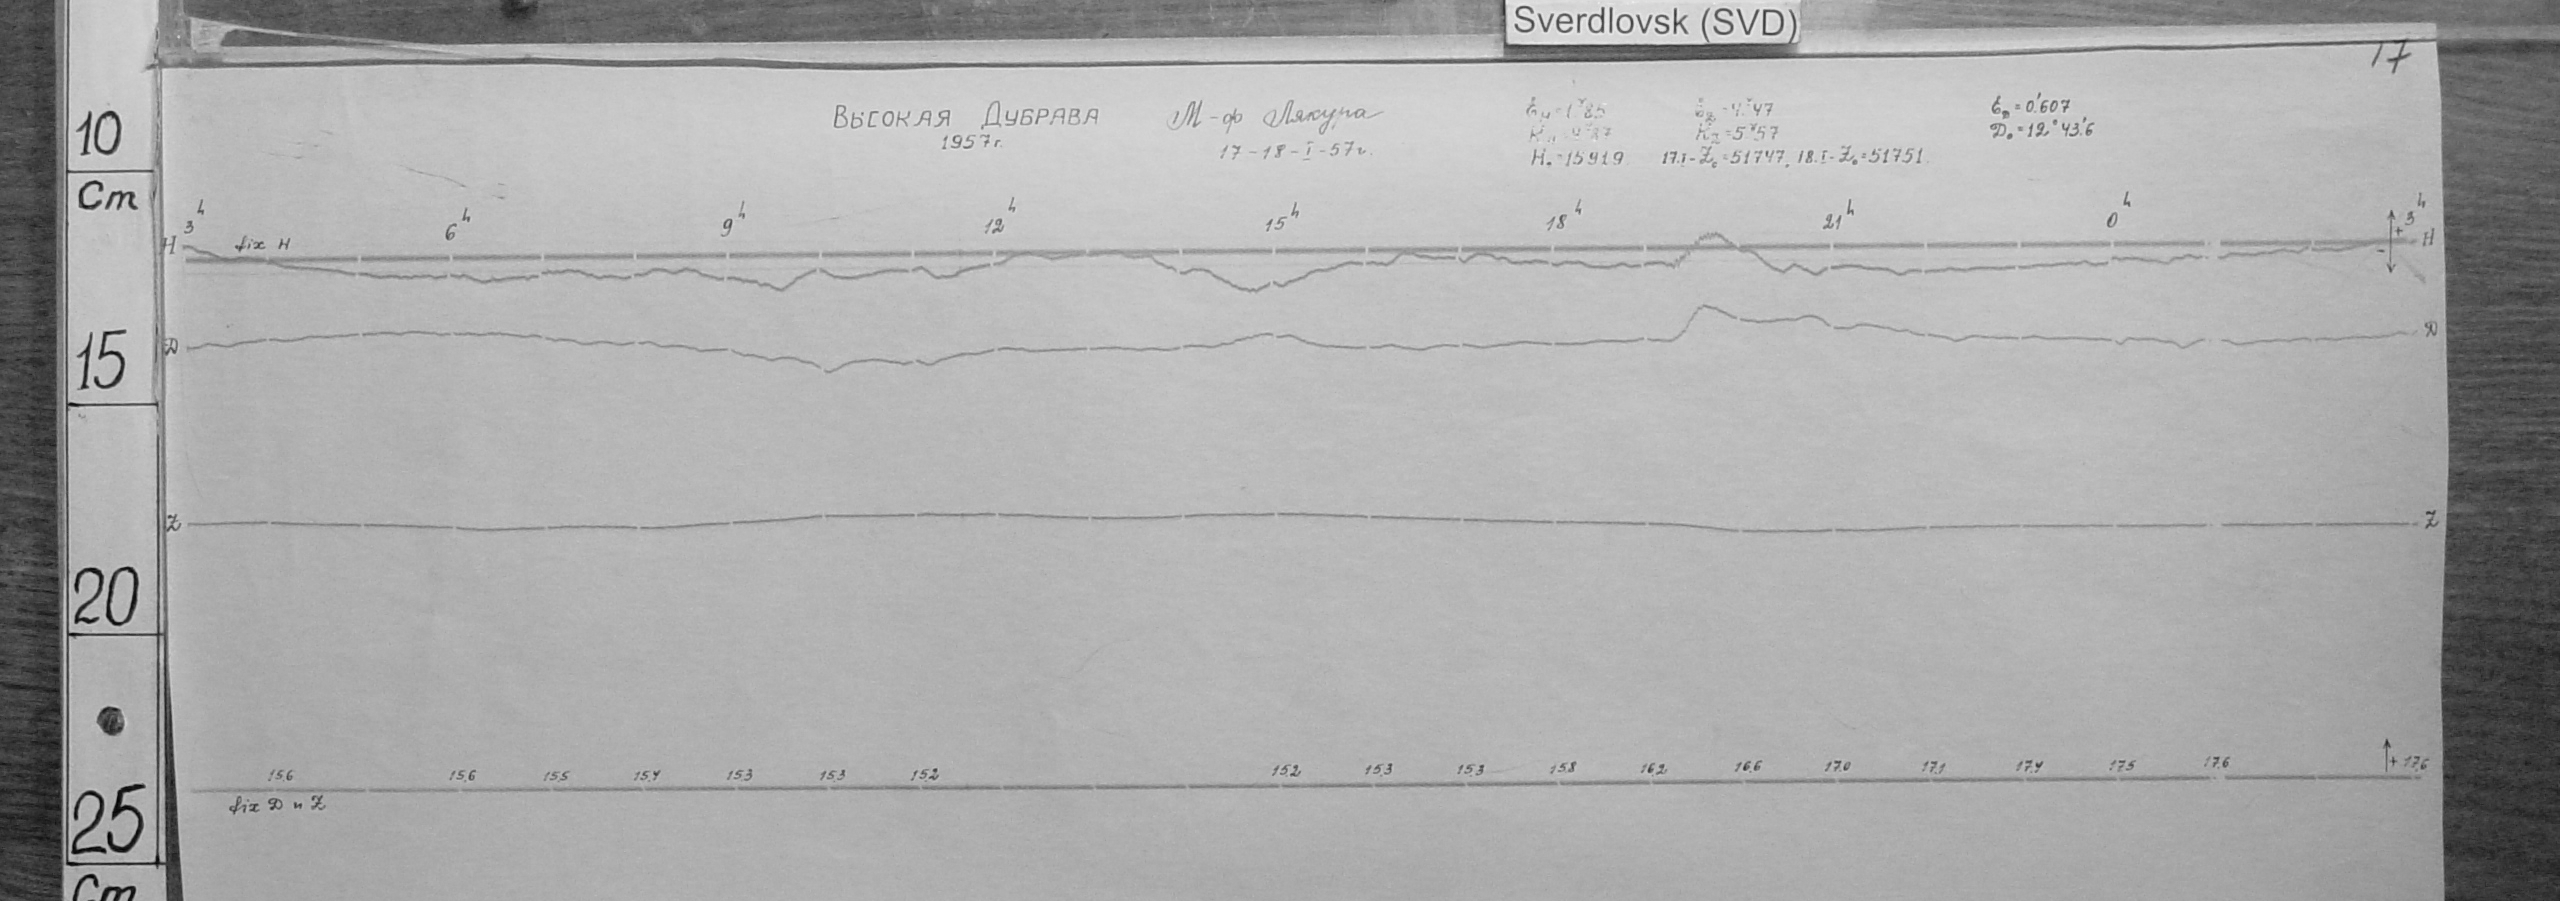 Sverdlovsk (SVD)
17
ВЫСОКАЯ ДУБРАВА
1957г.
М-ф Лякура
17-18-I-57г.
H₀=15919
Ɛz=4.ˠ47
Kz=5.ˠ57
17.I-Z₀=51747, 18.I-Z₀=51751
ƐD=0.'607
D₀=12°43.'6
10
Cm
15
20
25
Cm
3h 6h 9h 12h 15h 18h 21h 0h 3h
H fix H + - H
D D
Z Z
15.6 15.6 15.5 15.4 15.3 15.3 15.2 15.2 15.3 15.3 15.8 16.2 16.6 17.0 17.1 17.4 17.5 17.6 + 17.6
fix D и Z